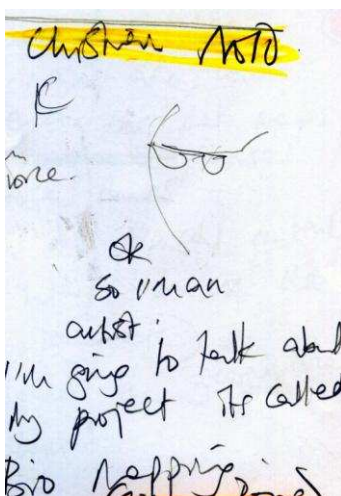 Christian Nold
ok
so i'm an
artist.
i'm going to talk about
my project its called
Bio Mapping